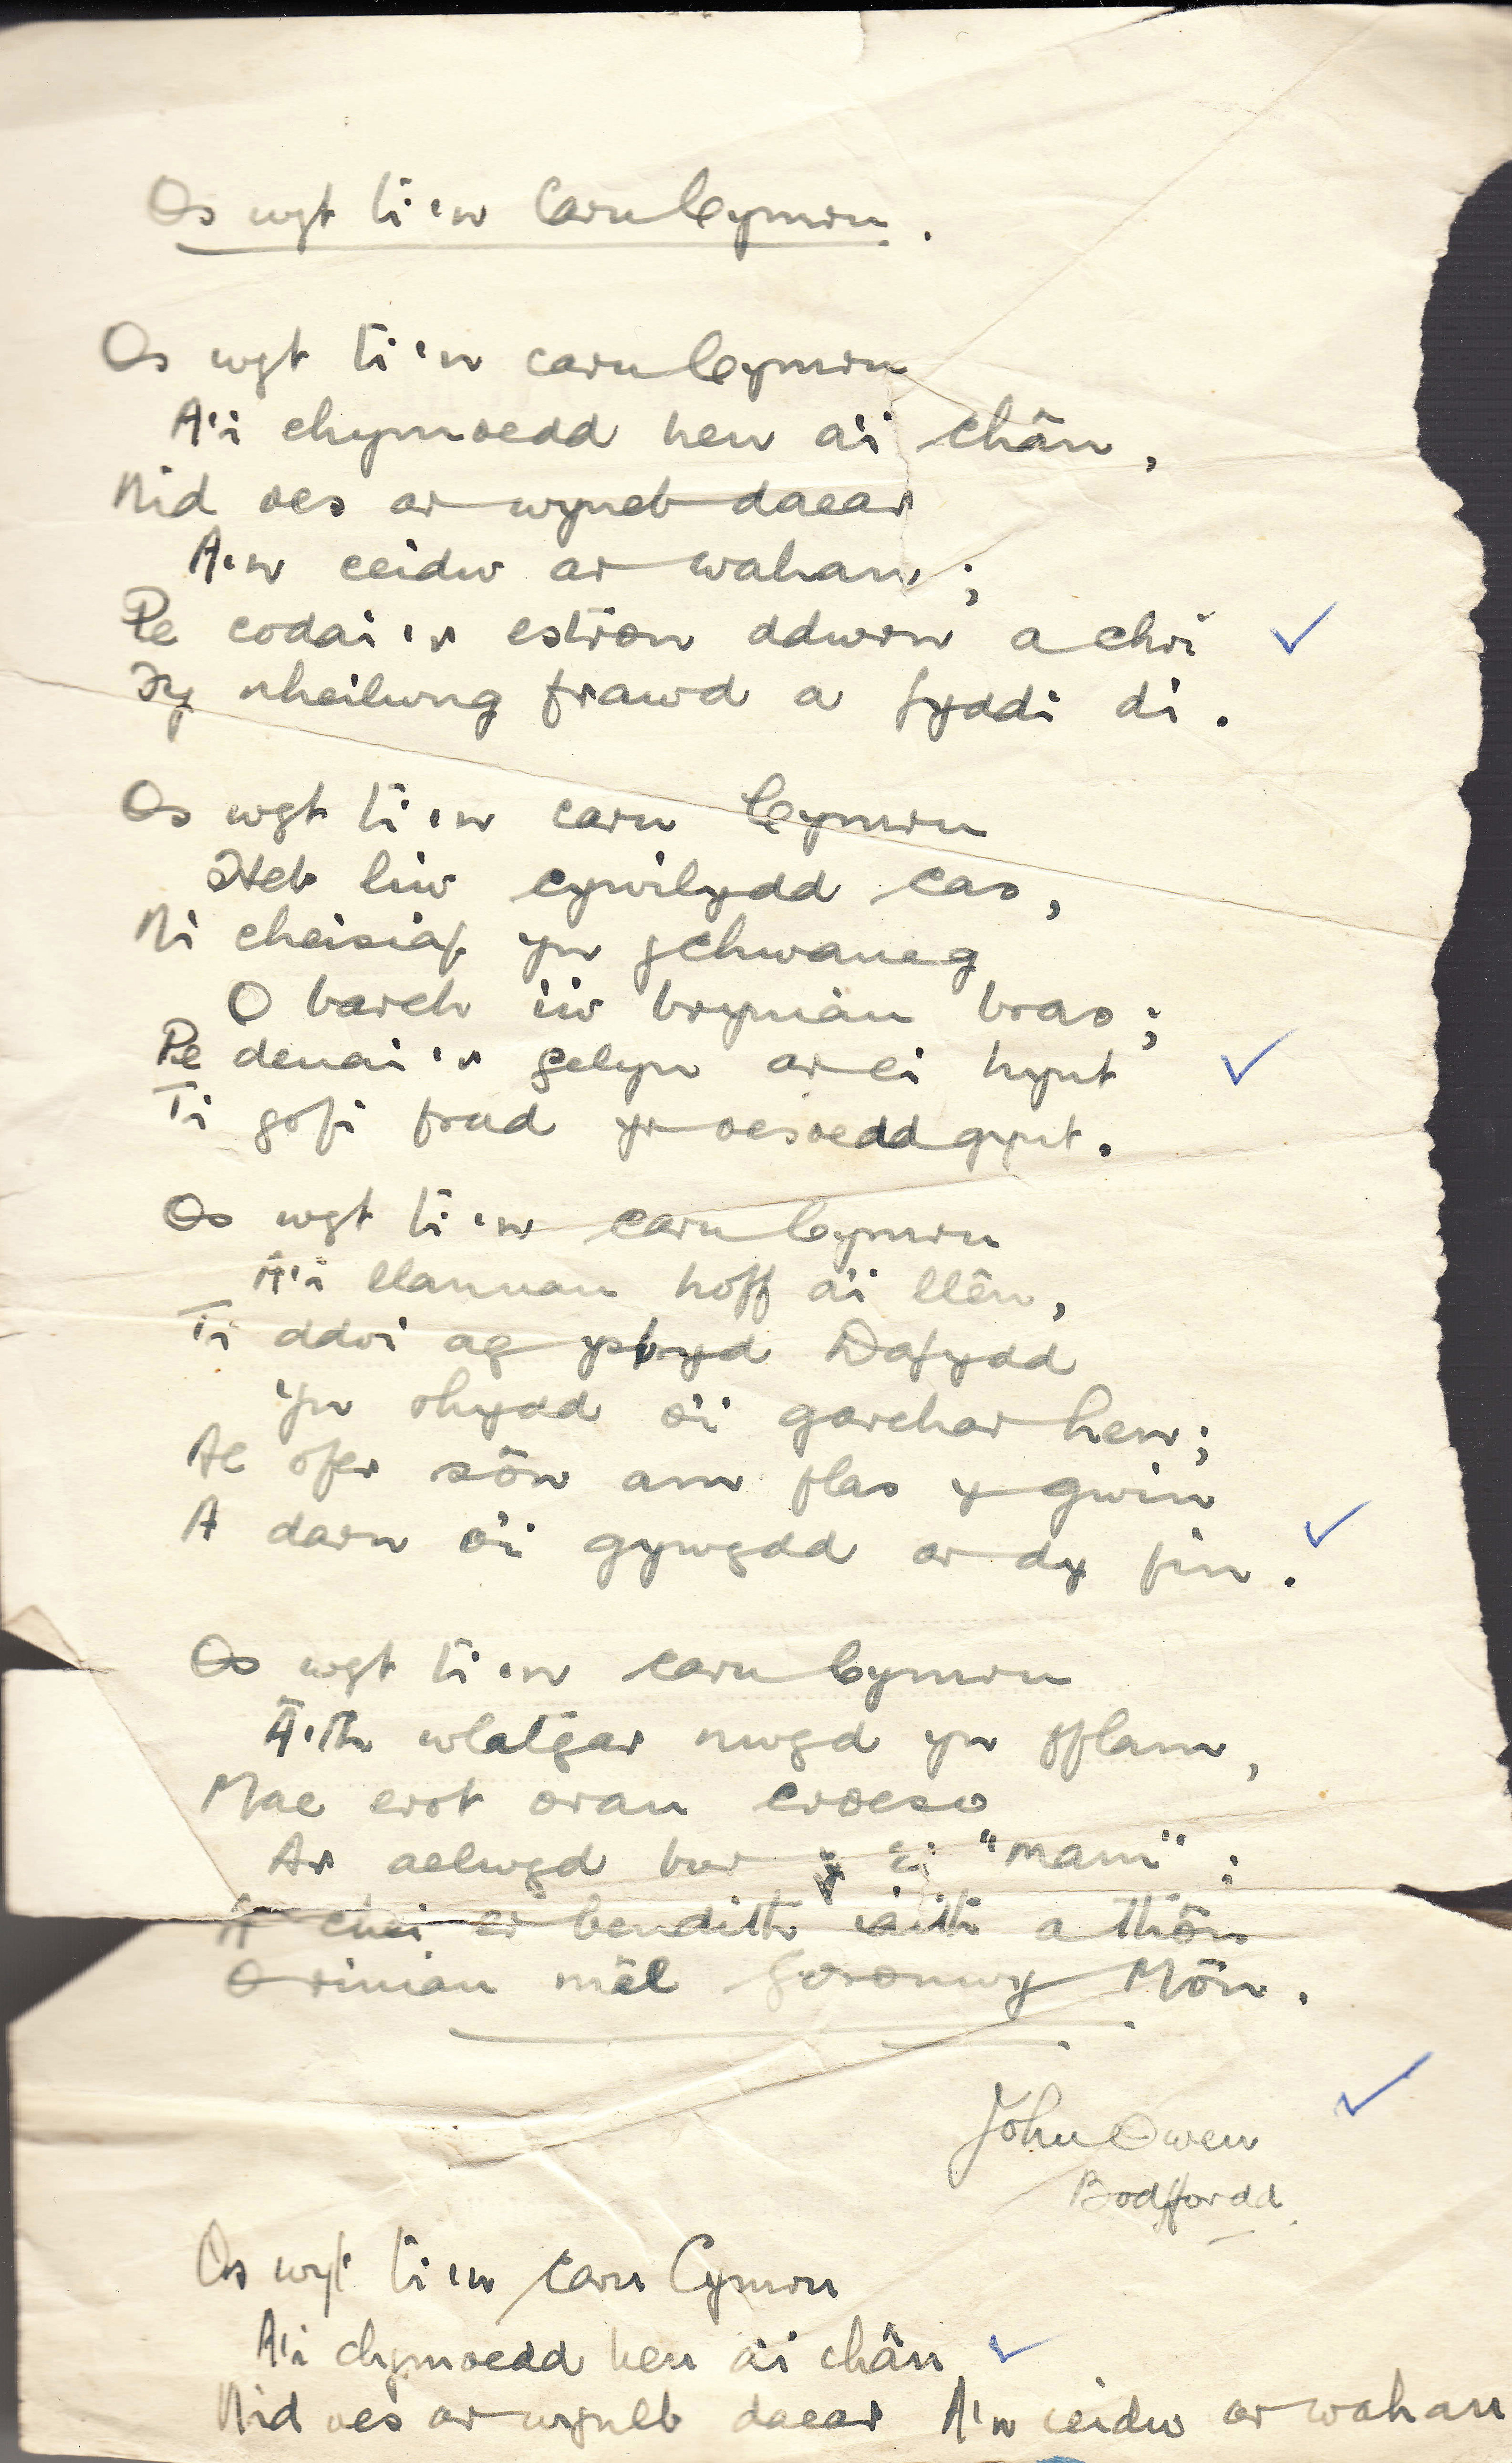 Os wyt ti'n Caru Cymru.
Os wyt ti'n caru Cymru
A'i chymoedd hen a'i chân,
Nid oes ar wyneb daear
A'n ceidw ar wahan;
Pe codai'r estron ddwrn a chri
Fy nheilwng frawd a fyddi di.
Os wyt ti'n caru Cymru
Heb liw cywilydd cas,
Ni cheisiaf yn ychwaneg
O barch i'w bryniau bras;
Pe denai'r gelyn ar ei hynt
Ti gofi frad yr oesoedd gynt.
Os wyt ti'n caru Cymru
A'i llannau hoff a'i llên,
Ti ddoi ag ysbryd Dafydd
Yn rhydd o'i garchar hen;
Ac ofer sôn am flas y gwin
A darn o'i gywydd ar dy fin.
Os wyt ti'n caru Cymru
A'th wlatgar nwyd yn fflam,
Mae erot oran croeso
Ar aelwyd bur ei "mam";
A chei er bendith iaith a thôn
O riniau mêl Goronwy Môn.
John Owen
Bodffordd.
Os wyt ti'n caru Cymru
A'i chymoedd hen a'i chân
Nid oes ar wyneb daear A'n ceidw ar wahan